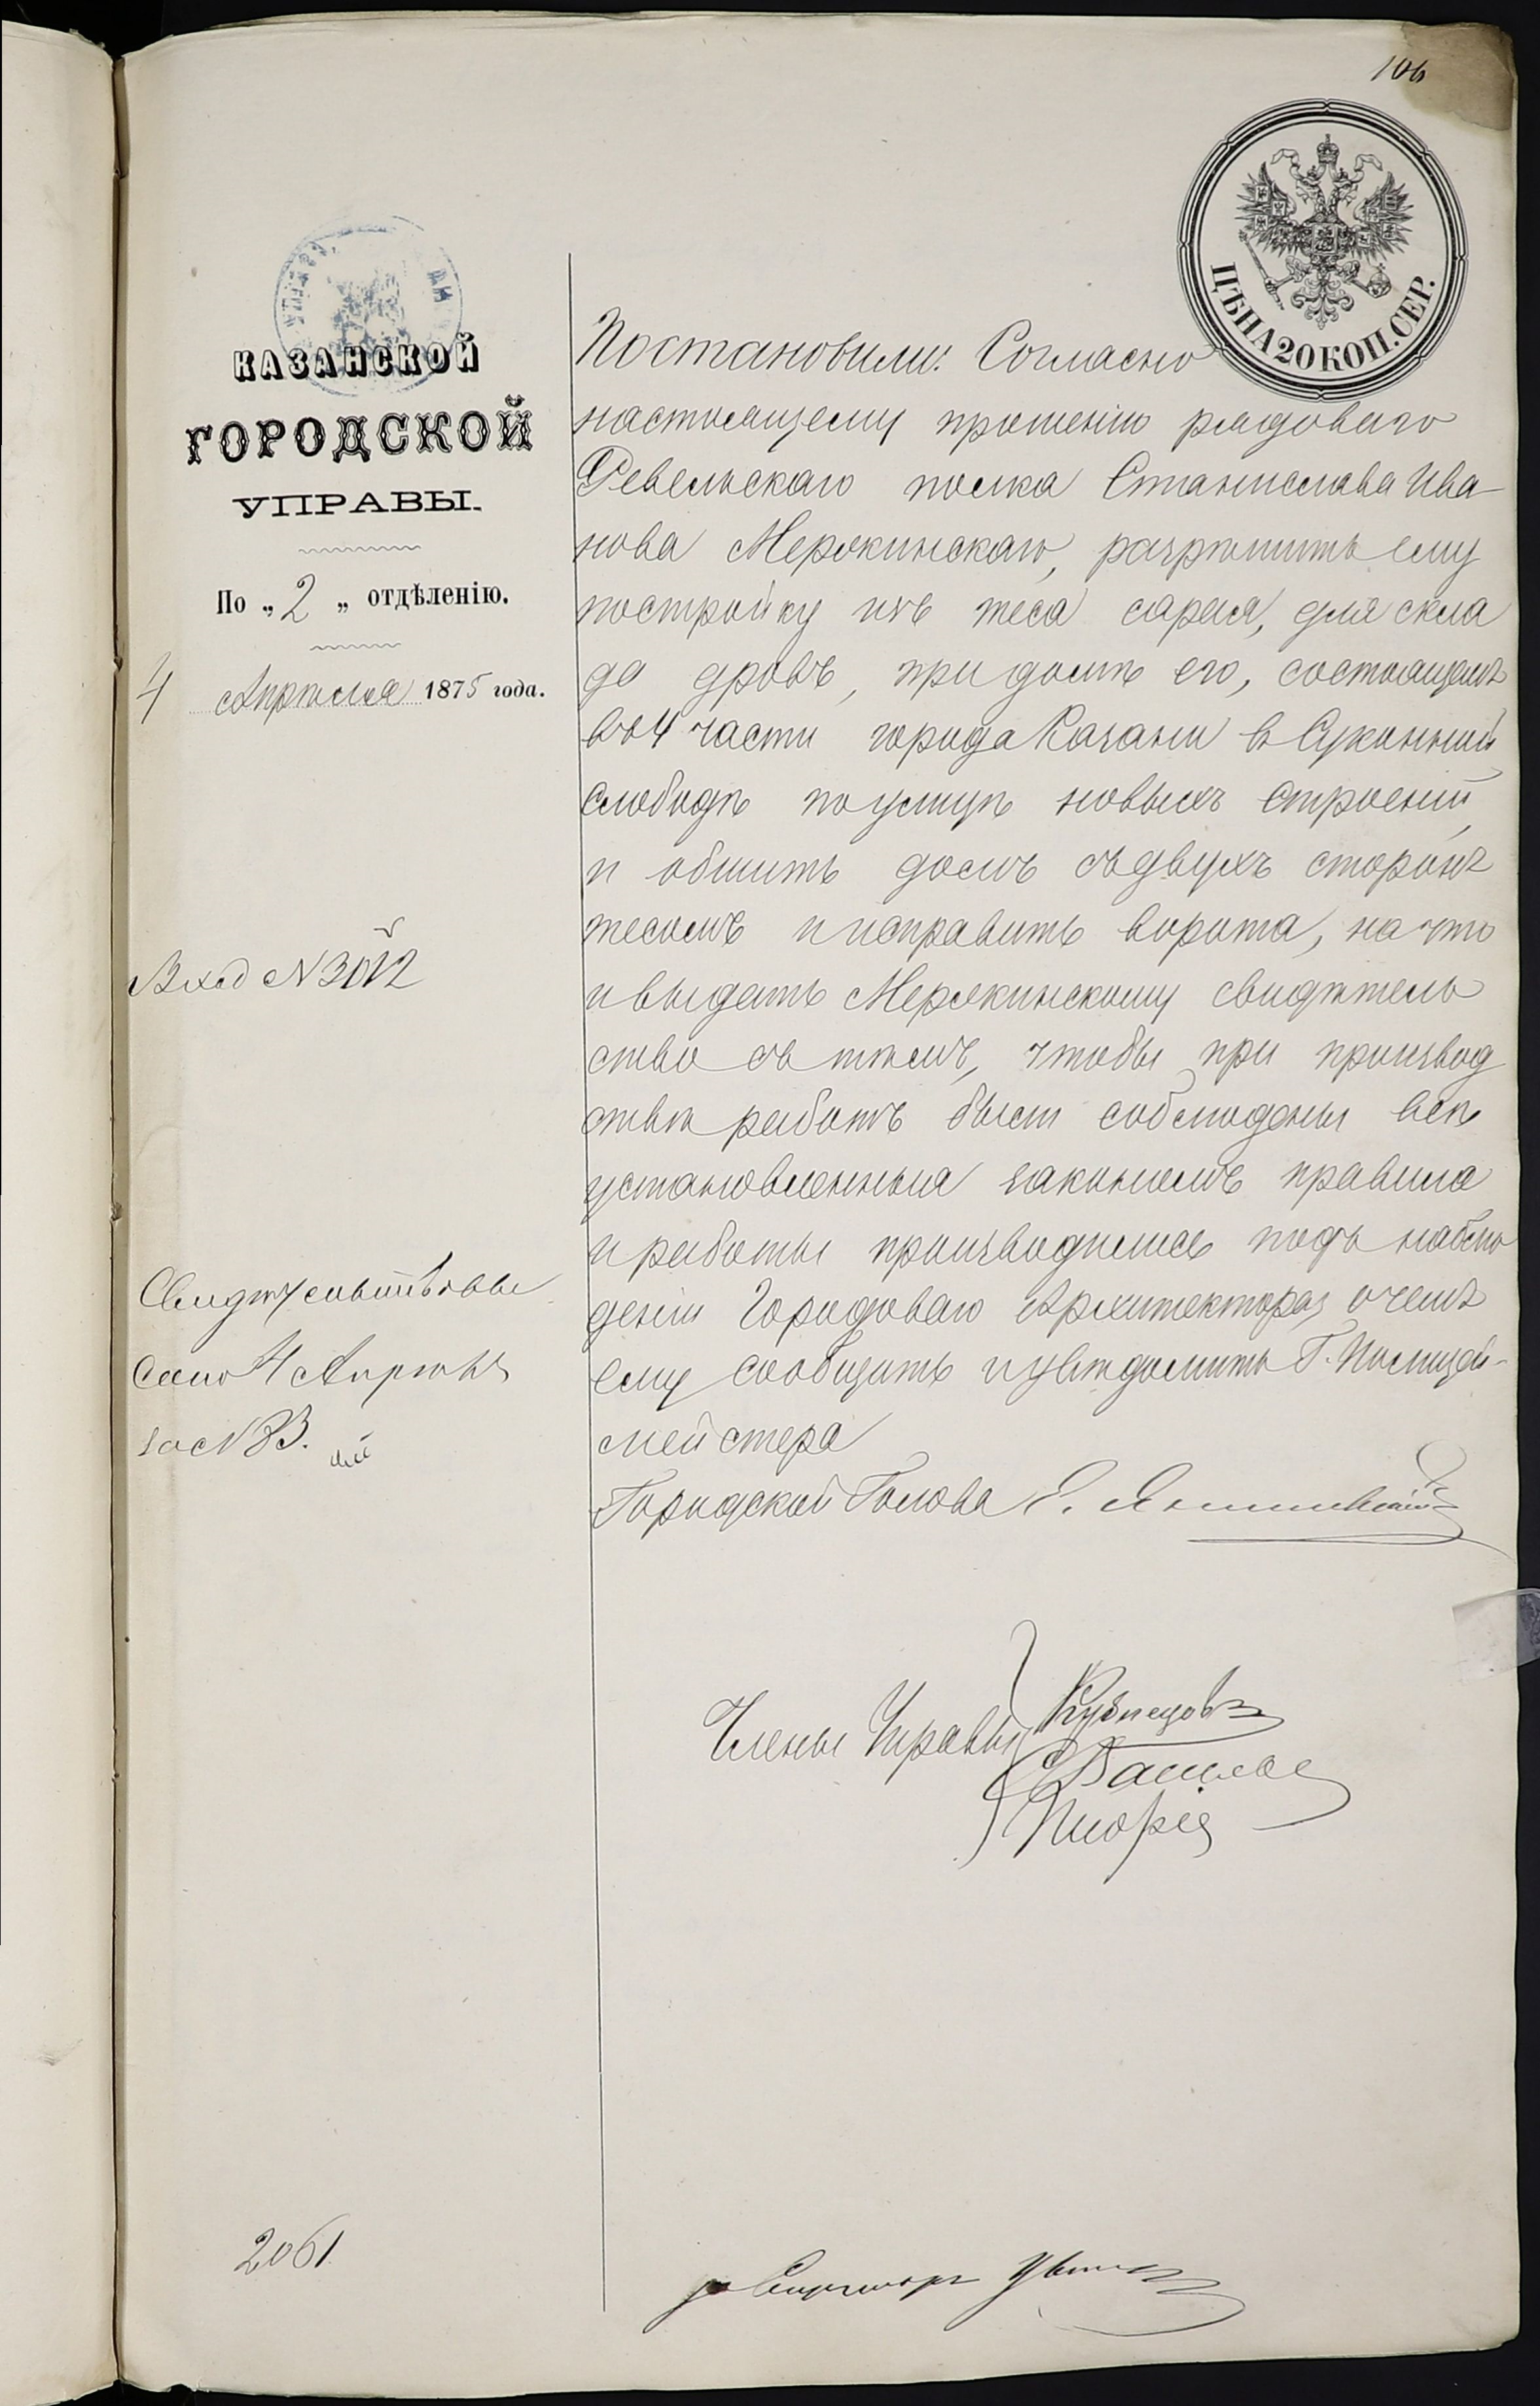 106
ЦѢНА 20 КОП. СЕР.
КАЗАНСКОЙ
ГОРОДСКОЙ
УПРАВЫ.
По „2„ отдѣленію.
4 Апрѣля 1875 года.
Вход № 3012
Свидѣтельство вы
дано 4 Апрѣля
за № 83.
2061
Постановили: Согласно
настоящему прошенію рядоваго
Ревельскаго полка Станислава Ива
нова Мерокинскаго, разрѣшить ему
постройку изъ теса сарая, для скла
да дровъ, при домѣ его, состоящемъ
во 4 части города Казани в Суконной
слободѣ по улицѣ новыхъ строеній,
и обшить домъ съ двухъ сторонъ
тесомъ и исправить ворота, на что
и выдать Мерокинскому свидѣтель
ство съ тѣмъ, чтобы при производ
ствѣ работъ были соблюдены всѣ
установленныя закономъ правила
и работы производились подъ наблю
деніи Городоваго Архитектора, о чемъ
ему сообщить и увѣдомить Г. Полицей-
мейстера
Городской Голова Э. Янишевскій
Члены Управы Кузнецовъ
за Секретаря